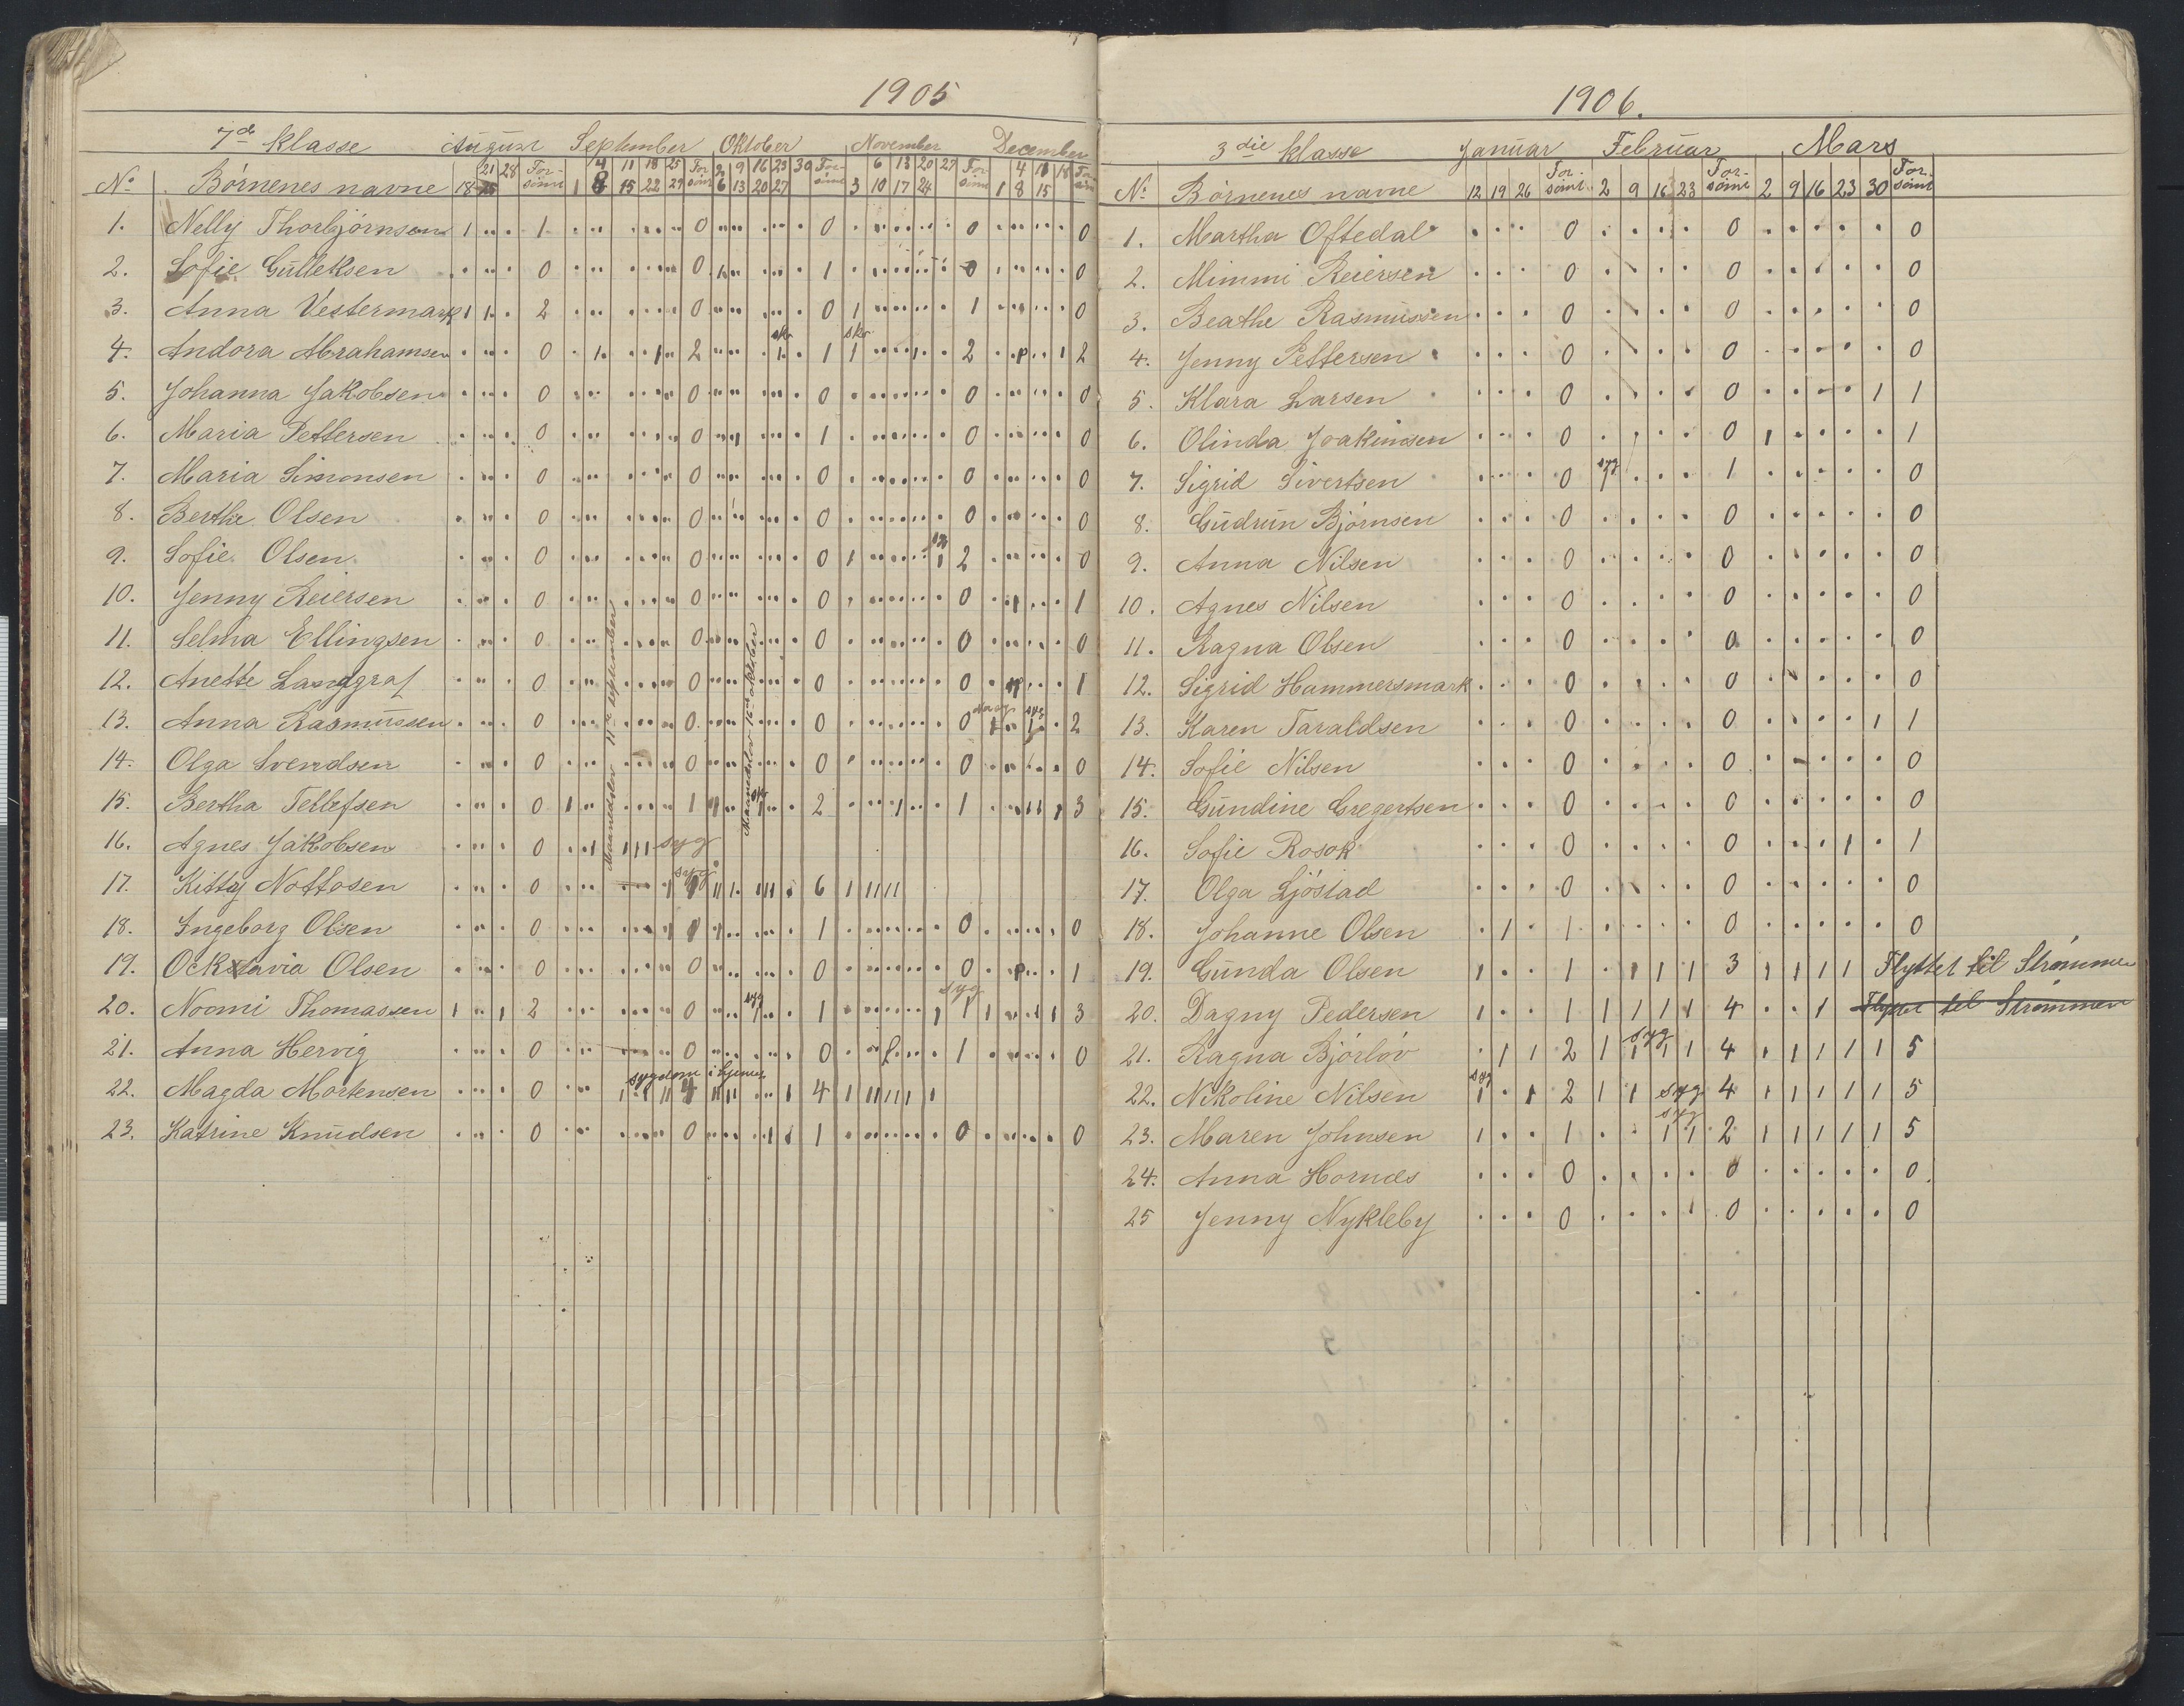 1905
7de klasse August September Oktober November December
No. Børnenes navne 18 21 25 28 Forsømt 1 4 8 11 15 18 22 25 29 Forsømt 2 6 9 13 16 20 23 27 30 Forsømt 3 6 10 13 17 20 24 27 Forsømt 1 4 8 11 15 18 Forsømt
1. Nelly Thorbjørnsen 1 1 0 0 0 0
2. Sofie Gulleksen 0 0 1 0 0
3. Anna Vestermark 1 1 2 0 0 1 1 0
4. Andora Abrahamsen 0 1 1 2 skr 1 1 skr 1 1 2 P 1 2
5. Johanna Jakobsen 0 0 0 0 0
6. Maria Pettersen 0 0 1 1 0 0
7. Maria Simonsen 0 0 0 0 0
8. Berthe Olsen 0 0 0 0 0
9. Sofie Olsen 0 0 0 1 1 2 0
10. Jenny Reiersen 0 0 0 0 1 1
11. Selma Ellingsen 0 0 0 0 0
12. Anette Landgraf 0 0 0 0 1
13. Anna Rasmussen 0 0 0 0 syg 2
14. Olga Svendsen 0 0 0 0 0
15. Bertha Tellefsen 0 1 1 2 1 1 3
16. Agnes Jakobsen 0 1 1 1 1 syg
17. Kitty Nottosen 0 syg 6 1 1 1 1 1
18. Ingeborg Olsen 0 1 0 0
19. Ockstavia Olsen 0 0 0 0 P 1
20. Noomi Thomassen 1 1 2 0 syg 1 syg 1 1 3
21. Anna Hervig 0 0 0 1 0
22. Magda Mortensen 0 sygdom i hjemmet 4 4
23. Katrine Knudsen 0 0 1 0 0
Maanedslov 11te september
Maanedslov 16de oktober
1906.
3die klasse Januar Februar Mars
No. Børnenes navne 12 19 26 Forsømt 2 9 16 23 Forsømt 2 9 16 23 30 Forsømt
1. Martha Oftedal 0 0 0
2. Mimmi Reiersen 0 0 0
3. Beathe Rasmussen 0 0 0
4. Jenny Pettersen 0 0 0
5. Klara Larsen 0 0 1 1
6. Olinda Joakimsen 0 0 1 1
7. Sigrid Sivertsen 0 syg 1 1 0
8. Gudrun Bjørnsen 0 0 0
9. Anna Nilsen 0 0 0
10. Agnes Nilsen 0 0 0
11. Ragna Olsen 0 0 0
12. Sigrid Hammersmark 0 0 0
13. Karen Taraldsen 0 0 1 1
14. Sofie Nilsen 0 0 0
15. Gundine Gregertsen 0 0 0
16. Sofie Rosok 0 0 1 1
17. Olga Ljøstad 0 0 0
18. Johanne Olsen 1 1 0 0
19. Gunda Olsen 1 1 1 1 1 3 1 1 1 1 Flyttet til Strømmen
20. Dagny Pedersen 1 1 1 1 1 1 4 1 Flyttet til Strømmen
21. Ragna Bjørløv 1 1 2 1 1 syg 1 1 4 1 1 1 1 1 5
22. Nikoline Nilsen syg 1 1 2 1 1 syg 4 1 1 1 1 1 5
23. Maren Johnsen 1 1 syg 1 1 2 1 1 1 1 1 5
24. Anna Hornes 0 0 0
25 Jenny Nykleby 0 0 0